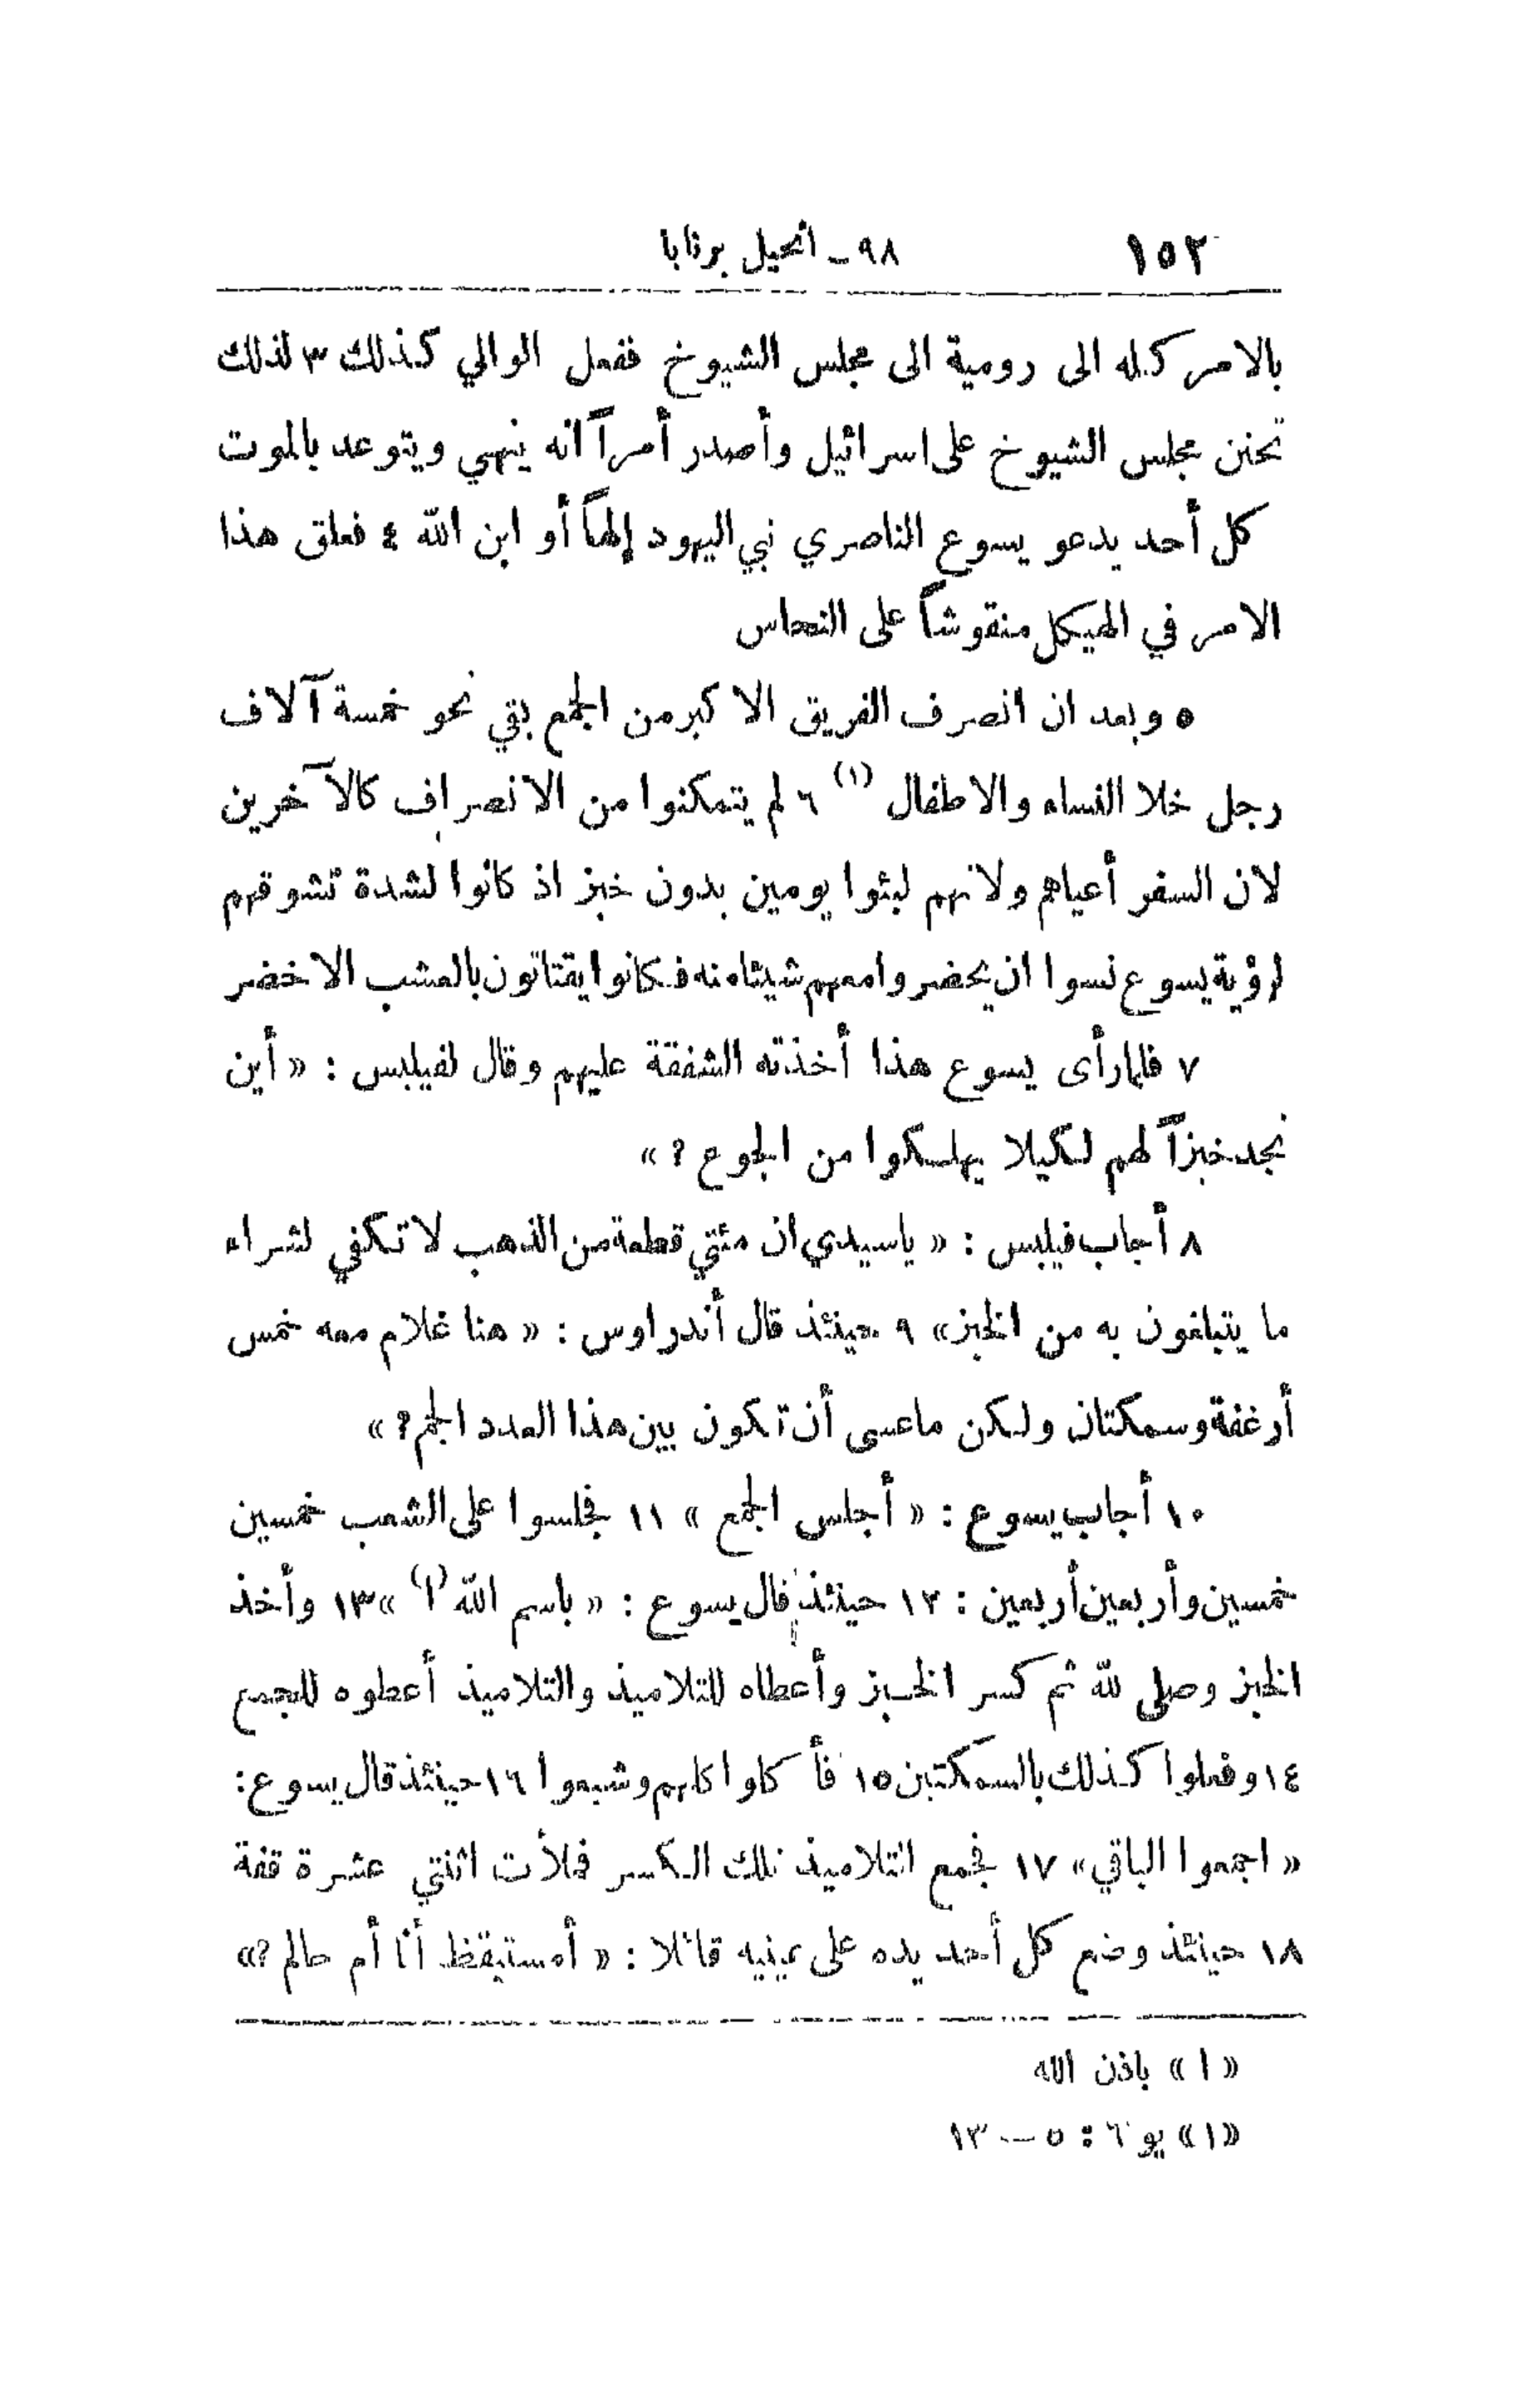 ١٥٢ ٩٨ـ انجيل برنابا
بالامر كله الى رومية الى مجلس الشيوخ ففعل الوالي كذلك ٣ لذلك
تحنن مجلس الشيوخ على اسرائيل وأصدر أمراً انه ينهي ويتوعد بالموت
كل أحد يدعو يسوع الناصري نبي اليهود إلهاً أو ابن الله ٤ فعلق هذا
الامر في الهيكل منقوشاً على النحاس
٥ وبعد ان انصرف الفريق الاكبر من الجمع بقي نحو خمسة آلاف
رجل خلا النساء والاطفال (١) ٦ لم يتمكنوا من الانصراف كالآخرين
لان السفر أعياهم ولانهم لبثوا يومين بدون خبز اذ كانوا لشدة تشوقهم
لرؤية يسوع نسوا ان يحضروا معهم شيئا منه فكانوا يقتاتون بالعشب الاخضر
٧ فلما رأى يسوع هذا أخذته الشفقة عليهم وقال لفيلبس : « أين
نجد خبزاً لهم لكيلا يهلكوا من الجوع ? »
٨ أجاب فيلبس : « ياسيدي ان مئتي قطعة من الذهب لا تكفي لشراء
ما يتبلغون به من الخبز» ٩ حينئذ قال أندراوس : « هنا غلام معه خمس
أرغفة وسمكتان ولكن ماعسى أن تكون بين هذا العدد الجم ? »
١٠ أجاب يسوع : « أجلس الجمع » ١١ فجلسوا على الشعب خمسين
خمسين وأربعين أربعين : ١٢ حينئذ قال يسوع : « باسم الله (١) » ١٣ وأخذ
الخبز وصلى لله ثم كسر الخبز وأعطاه للتلاميذ والتلاميذ أعطوه للجمع
١٤ وفعلوا كذلك بالسمكتين ١٥ فأكلوا كلهم وشبعوا ١٦ حينئذ قال يسوع :
« اجمعوا الباقي » ١٧ فجمع التلاميذ تلك الكسر فملأت اثنتي عشرة قفة
١٨ حينئذ وضع كل أحد يده على عينيه قائلا : « أمستيقظ أنا أم حالم ?»
« ا » باذن الله
«١» يو ٦ : ٥ — ١٣